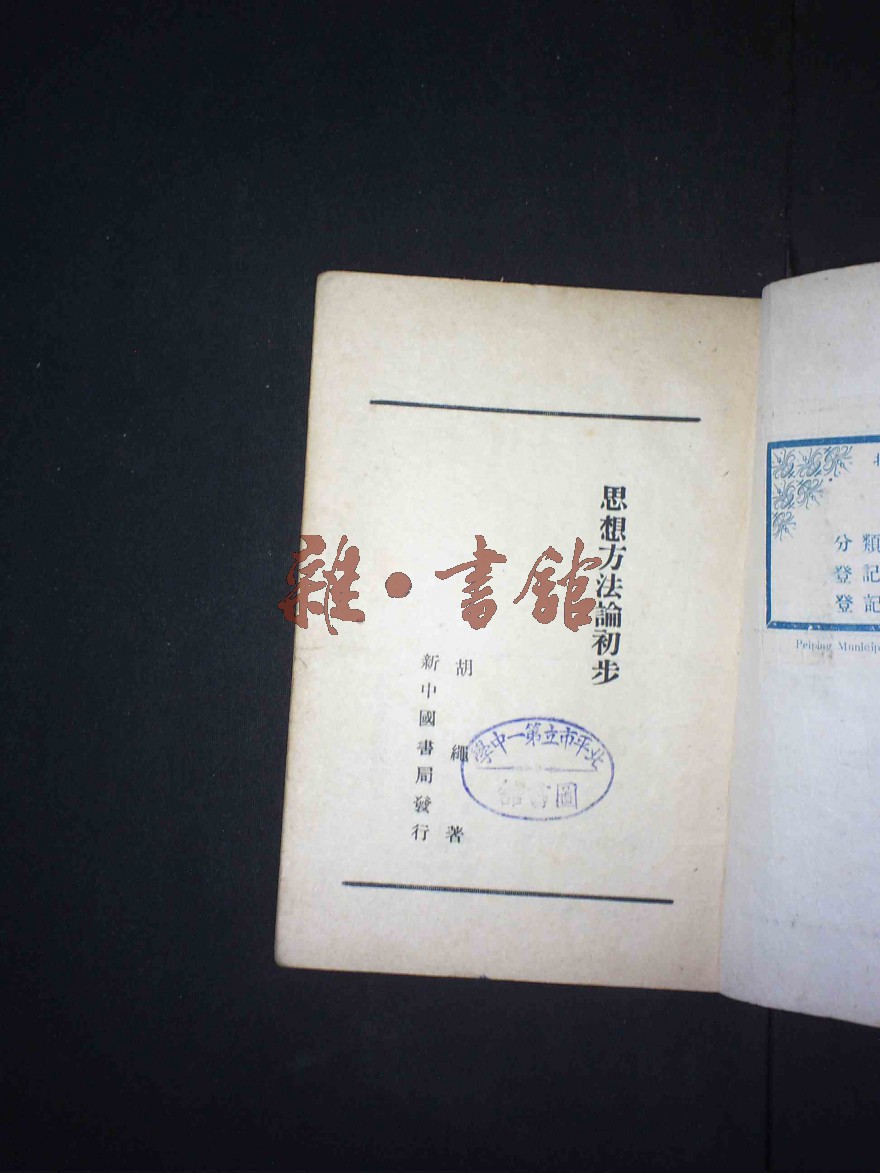 思想方法論初步
胡繩著
新中國書局發行
北平市立第一中學
圖書館
雜·書館
分類
登記
登記
Peiping Municip